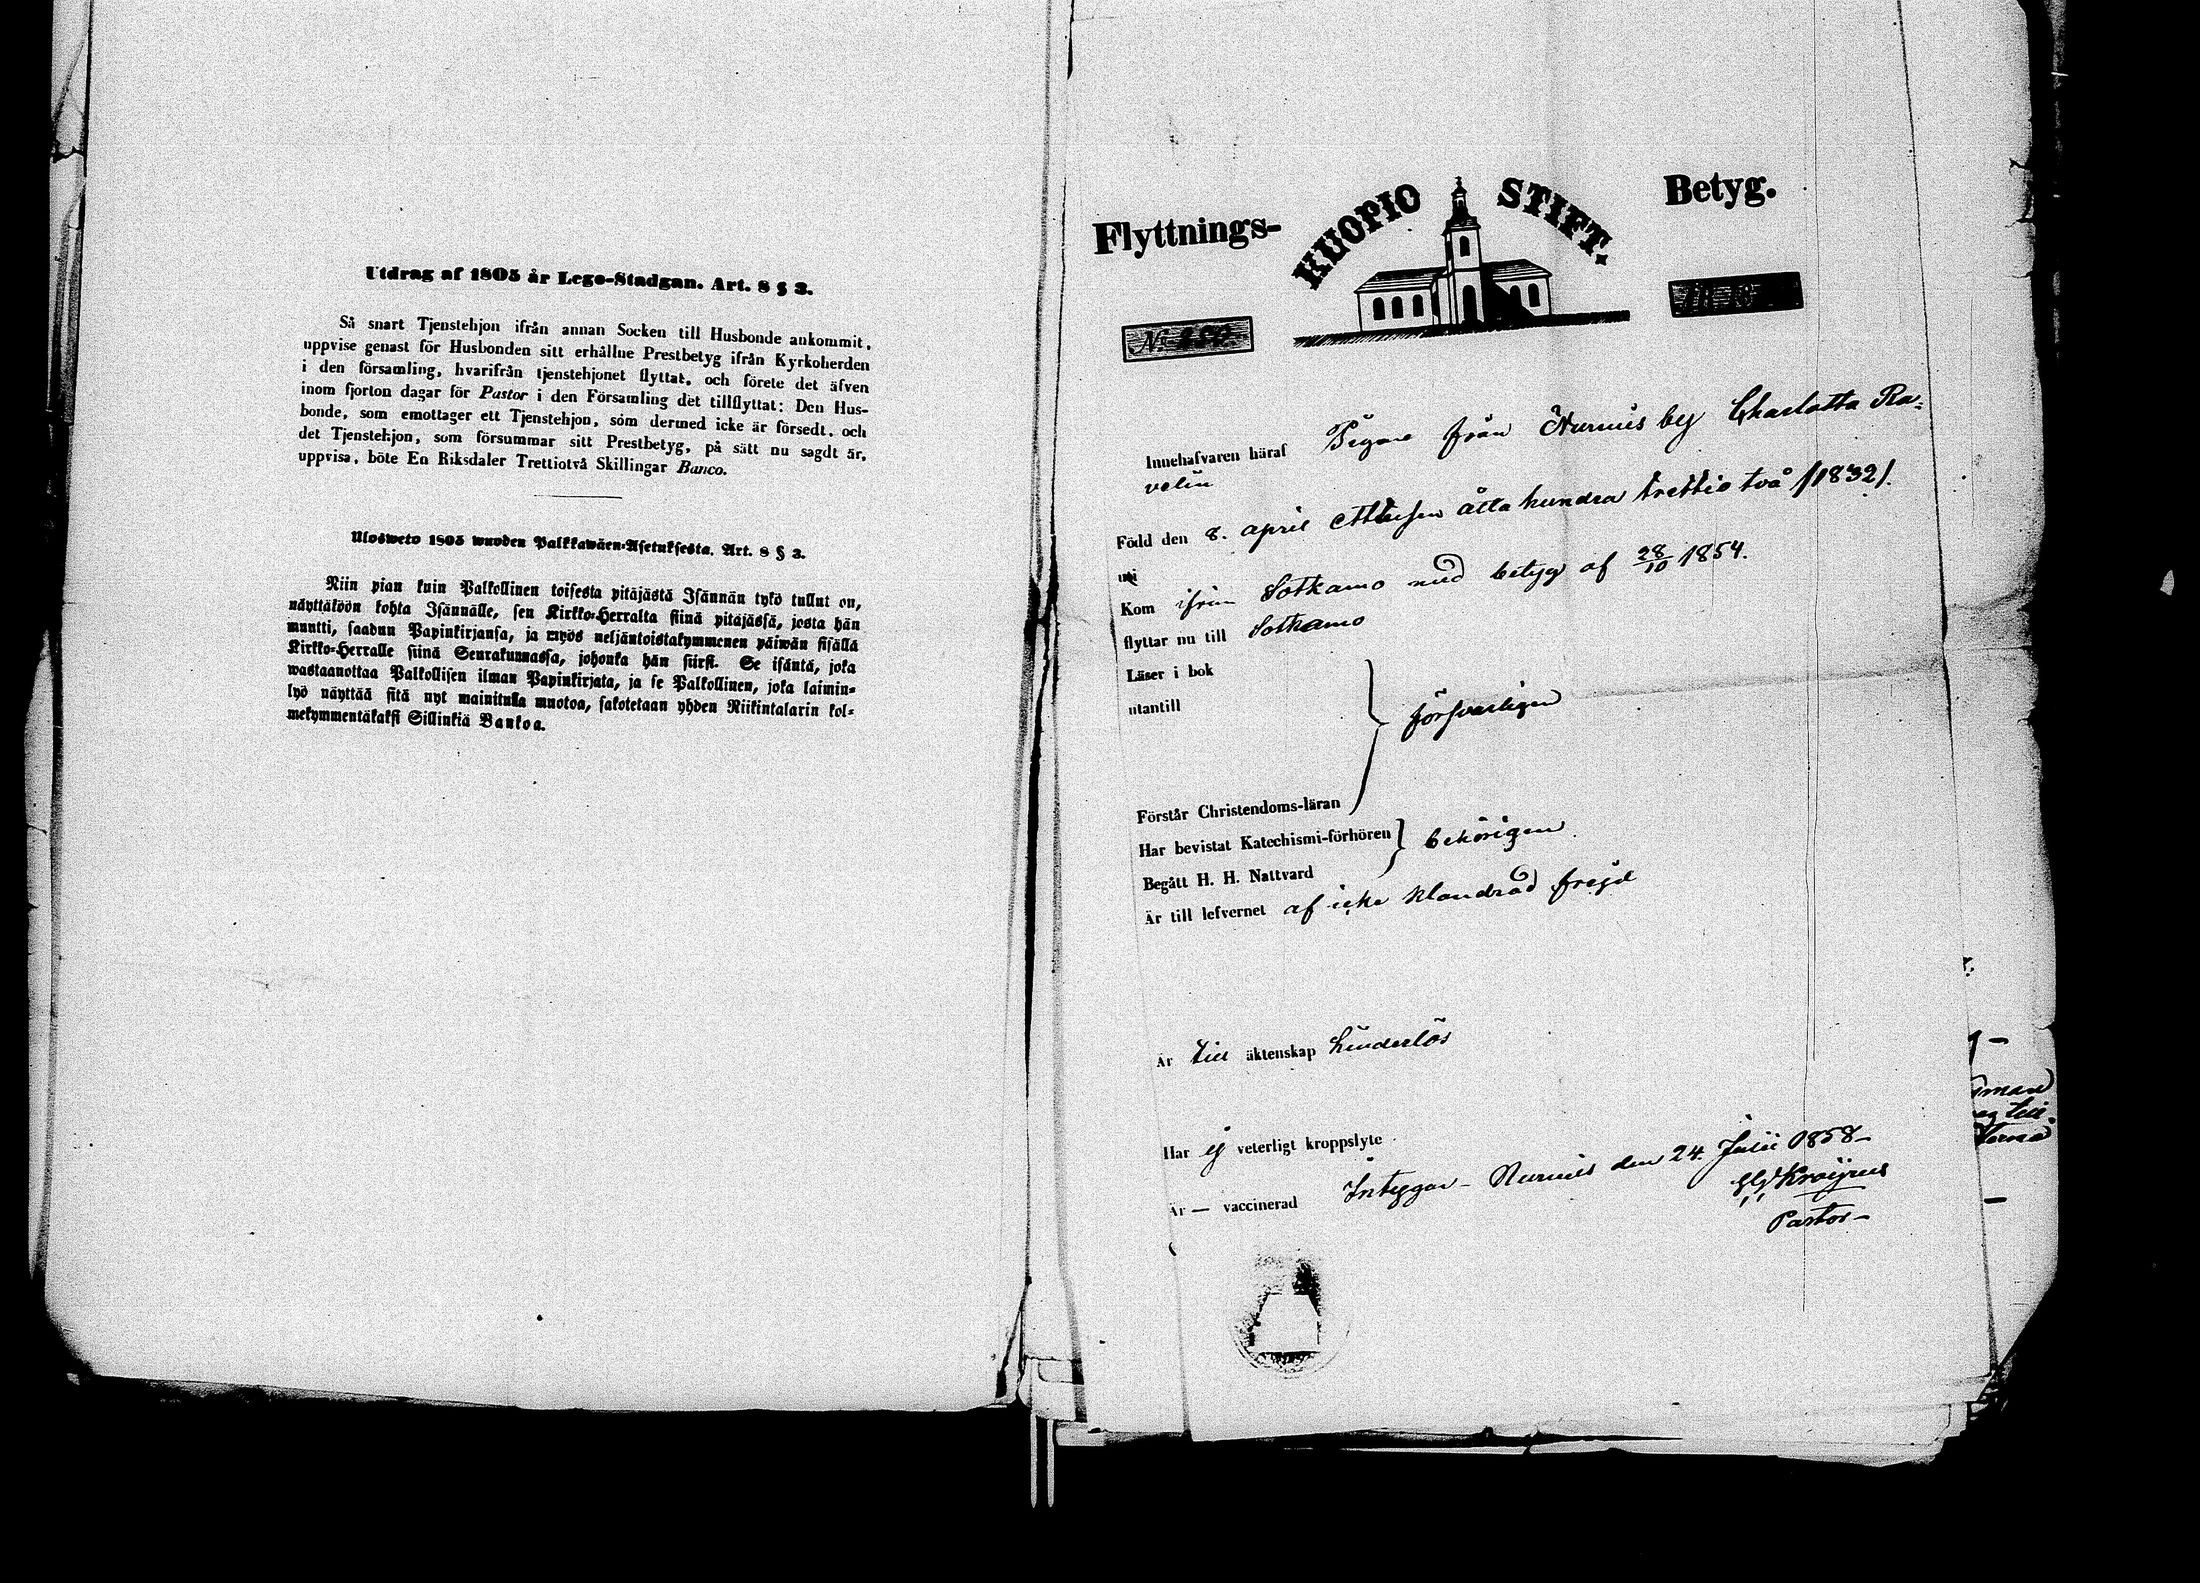 Utdrag af 1805 år Lego-Stadgan. Art. 8 § 3.
Så snart Tjenstehjon ifrån annan Socken till Husbonde ankommit,
uppvise genast för Husbonden sitt erhållne Prestbetyg ifrån Kyrkoherden
i den församling, hvarifrån tjenstehjonet flyttat, och förete det äfven
inom fjorton dagar för Pastor i den Församling det tillflyttat: Den Hus-
bonde, som emottager ett Tjenstehjon, som dermed icke är försedt, och
det Tjenstehjon, som försummar sitt Prestbetyg, på sätt nu sagdt är,
uppvisa, böte En Riksdaler Trettiotvå Skillingar Banco.
Ulosweto 1805 wuoden Palkkawäen-Asetuksesta. Art. 8 § 3.
Niin pian kuin Palkollinen toisesta pitäjästä Isännän tykö tullut on,
näyttäköön kohta Isännälle, sen Kirkko-Herralta siinä pitäjässä, josta hän
muutti, saadun Papinkirjansa, ja myös neljäntoistakymmenen päiwän sisällä
Kirkko-Herralle siinä Seurakunnassa, johonka hän siirsi. Se isäntä, joka
wastaanottaa Palkollisen ilman Papinkirjata, ja se Palkollinen, joka laimin-
lyö näyttää sitä nyt mainitulla muotoa, sakotetaan yhden Riikintalarin kol-
mekymmentäkaksi Sillinkiä Bankoa.
Flyttnings- KUOPIO STIFT. Betyg.
No
Innehafvaren häraf Pigan från Nurmis by Charlotta Ra-
velin
Född den 8. april Attusen åtta hundra trettio två /1832/.
Kom ifrån Sotkamo med betyg af 28/10 1854.
flyttar nu till Sotkamo
Läser i bok
utantill
försvarligen
Förstår Christendoms-läran
Har bevistat Katechismi-förhören
behörigen
Begått H. H. Nattvard
Är till lefvernet af icke klandrad frejd
Är till äktenskap hinderlös
Har ej veterligt kroppslyte
Är — vaccinerad
Intygar - Nurmis den 24. Julii 1858 -
Krogerus
Pastor -